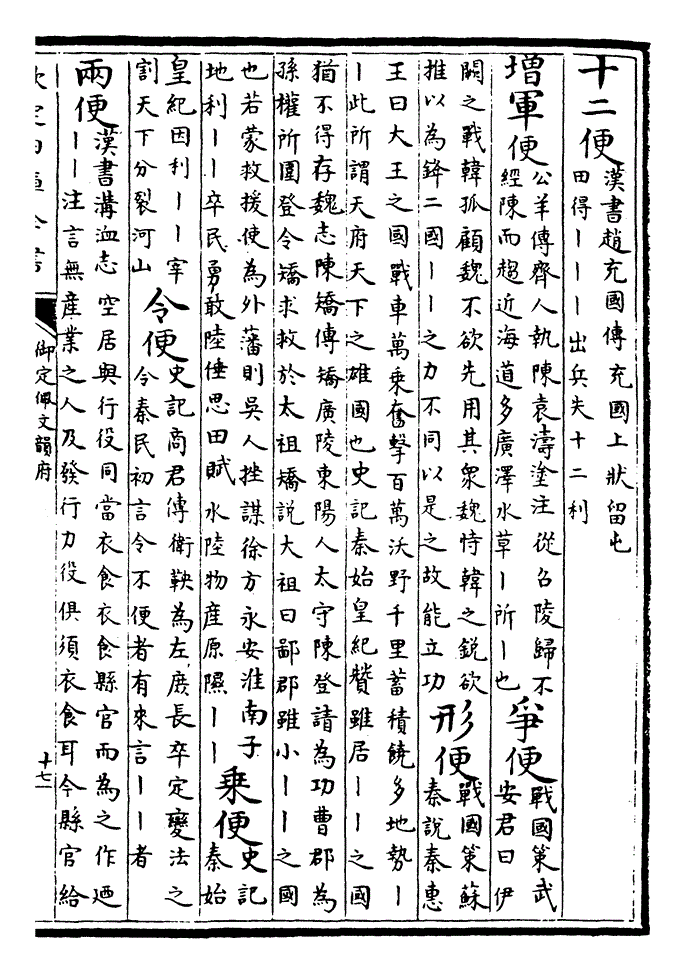 十二便
漢書趙充國傳充國上狀留屯
田得丨丨丨出兵失十二利
增軍便
公羊傳齊人執陳袁濤塗注從召陵歸不
經陳而趨近海道多廣澤水草丨所丨也
爭便
戰國策武
安君曰伊
闕之戰韓孤顧魏不欲先用其衆魏恃韓之銳欲
推以為鋒二國丨丨之力不同以是之故能立功
形便
戰國策蘇
秦說秦惠
王曰大王之國戰車萬乗奮擊百萬沃野千里蓄積饒多地勢丨
丨此所謂天府天下之雄國也史記秦始皇紀贊雖居丨丨之國
猶不得存魏志陳矯傳矯廣陵東陽人太守陳登請為功曹郡為
孫權所圍登令矯求救於太祖矯說大祖曰鄙郡雖小丨丨之國
也若蒙救援使為外藩則吳人挫謀徐方永安淮南子
地利丨丨卒民勇敢陸倕思田賦 水陸物産原隰丨丨
乗便
史記
秦始
皇紀因利丨丨宰
割天下分裂河山
令便
史記商君傳衛鞅為左庶長卒定變法之
令秦民初言令不便者有來言丨丨者
兩便
漢書溝洫志 空居與行役同當衣食衣食縣官而為之作廼
丨丨注言無産業之人及發行力役俱須衣食耳今縣官給
欽定四庫全書
御定佩文韻府
十七